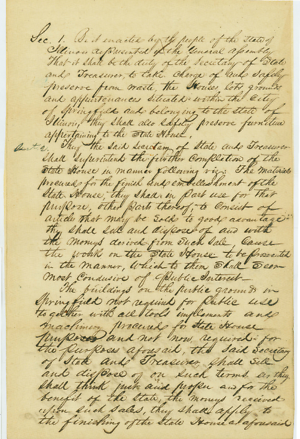 Sec. 1. Be it enacted by the people of the State of
Illinois represented in the General Assembly
That it shall be the duty of the Secretary of State
and Treasurer to take charge of and safely
preserve from waste, the Houses, lots grounds
and appurtenances situated within the City
of Springfield and belonging to the State of
Illinois, they shall also preserve furniture
appertaining to the State House.
Sect 2. They the said Secretary of State and Treasurer
shall superintend the further Completion of the
State House in manner following viz: The materials
procured for the finish and embellishment of the
State House, they shall in part use for that
purpose, that part to consist of
articles that may be sold to good advantage
they shall sell and dispose of and with
the moneys derived from such sale, Cause
the work on the State House to be forwarded
in the manner, which to them shall seem
most Conducive of public Interest.
The buildings on the public grounds in
Springfield not required for public use
together with all tools implements and
machinery procured for State House
purposes and not now required for
the purpose aforesaid, the said Secretary
of State and Treasurer shall sell
and dispose of on such terms as they
shall think just and proper and for the
benefit of the State, the moneys received
upon such sales, they shall apply to
the finishing of the State House aforesaid